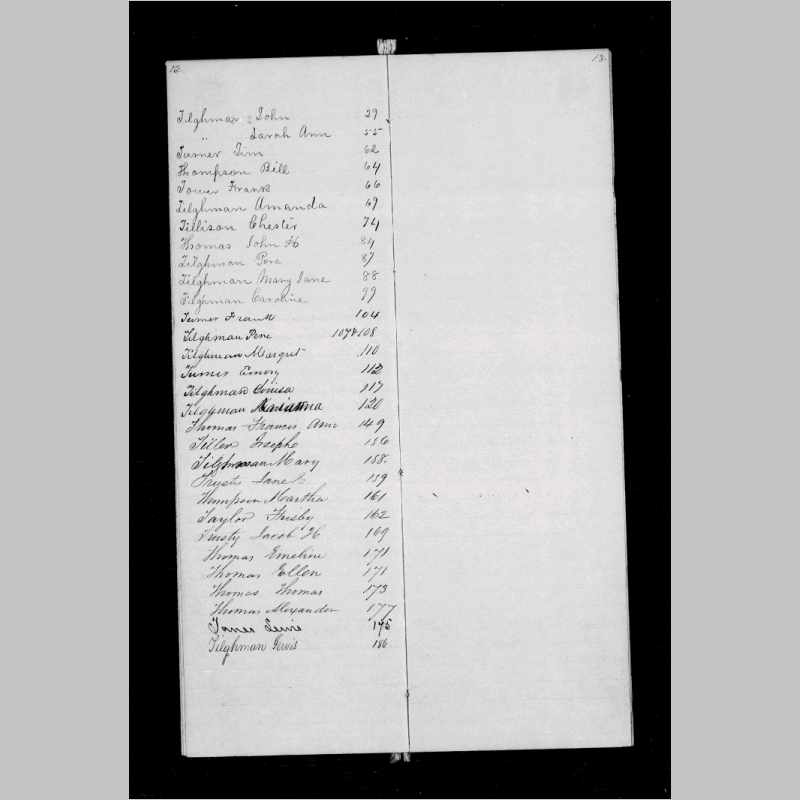 12
13
Tilghman John 29
" Sarah Ann 55
Turner Tim 62
Thompson Bill 64
Tower Frank 66
Tilghman Amanda 69
Tillison Chester 74
Thomas John H 84
Tilghman Pere 87
Tilghman Mary Jane 88
Tilghman Caroline 99
Turner Frank 104
Tilghman Pere 107&108
Tilghman Margret 110
Turner Emory 112
Tilghman Louisa 117
Tilghman Marianna 120
Thomas Frances Ann 149
Tiller Joseph 156
Tilghman Mary 158
Jane 159
Thompson Martha 161
Taylor Frisby 162
Trusty Jacob H 169
Thomas Emeline 171
Thomas Ellen 171
Thomas Thomas 173
Thomas Alexander 177
Lewis 175
Tilghman Lewis 186